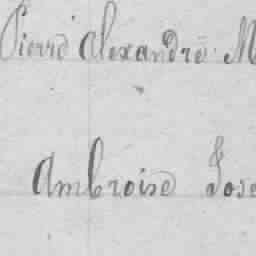 Pierre Alexandre M
Ambroise Jose